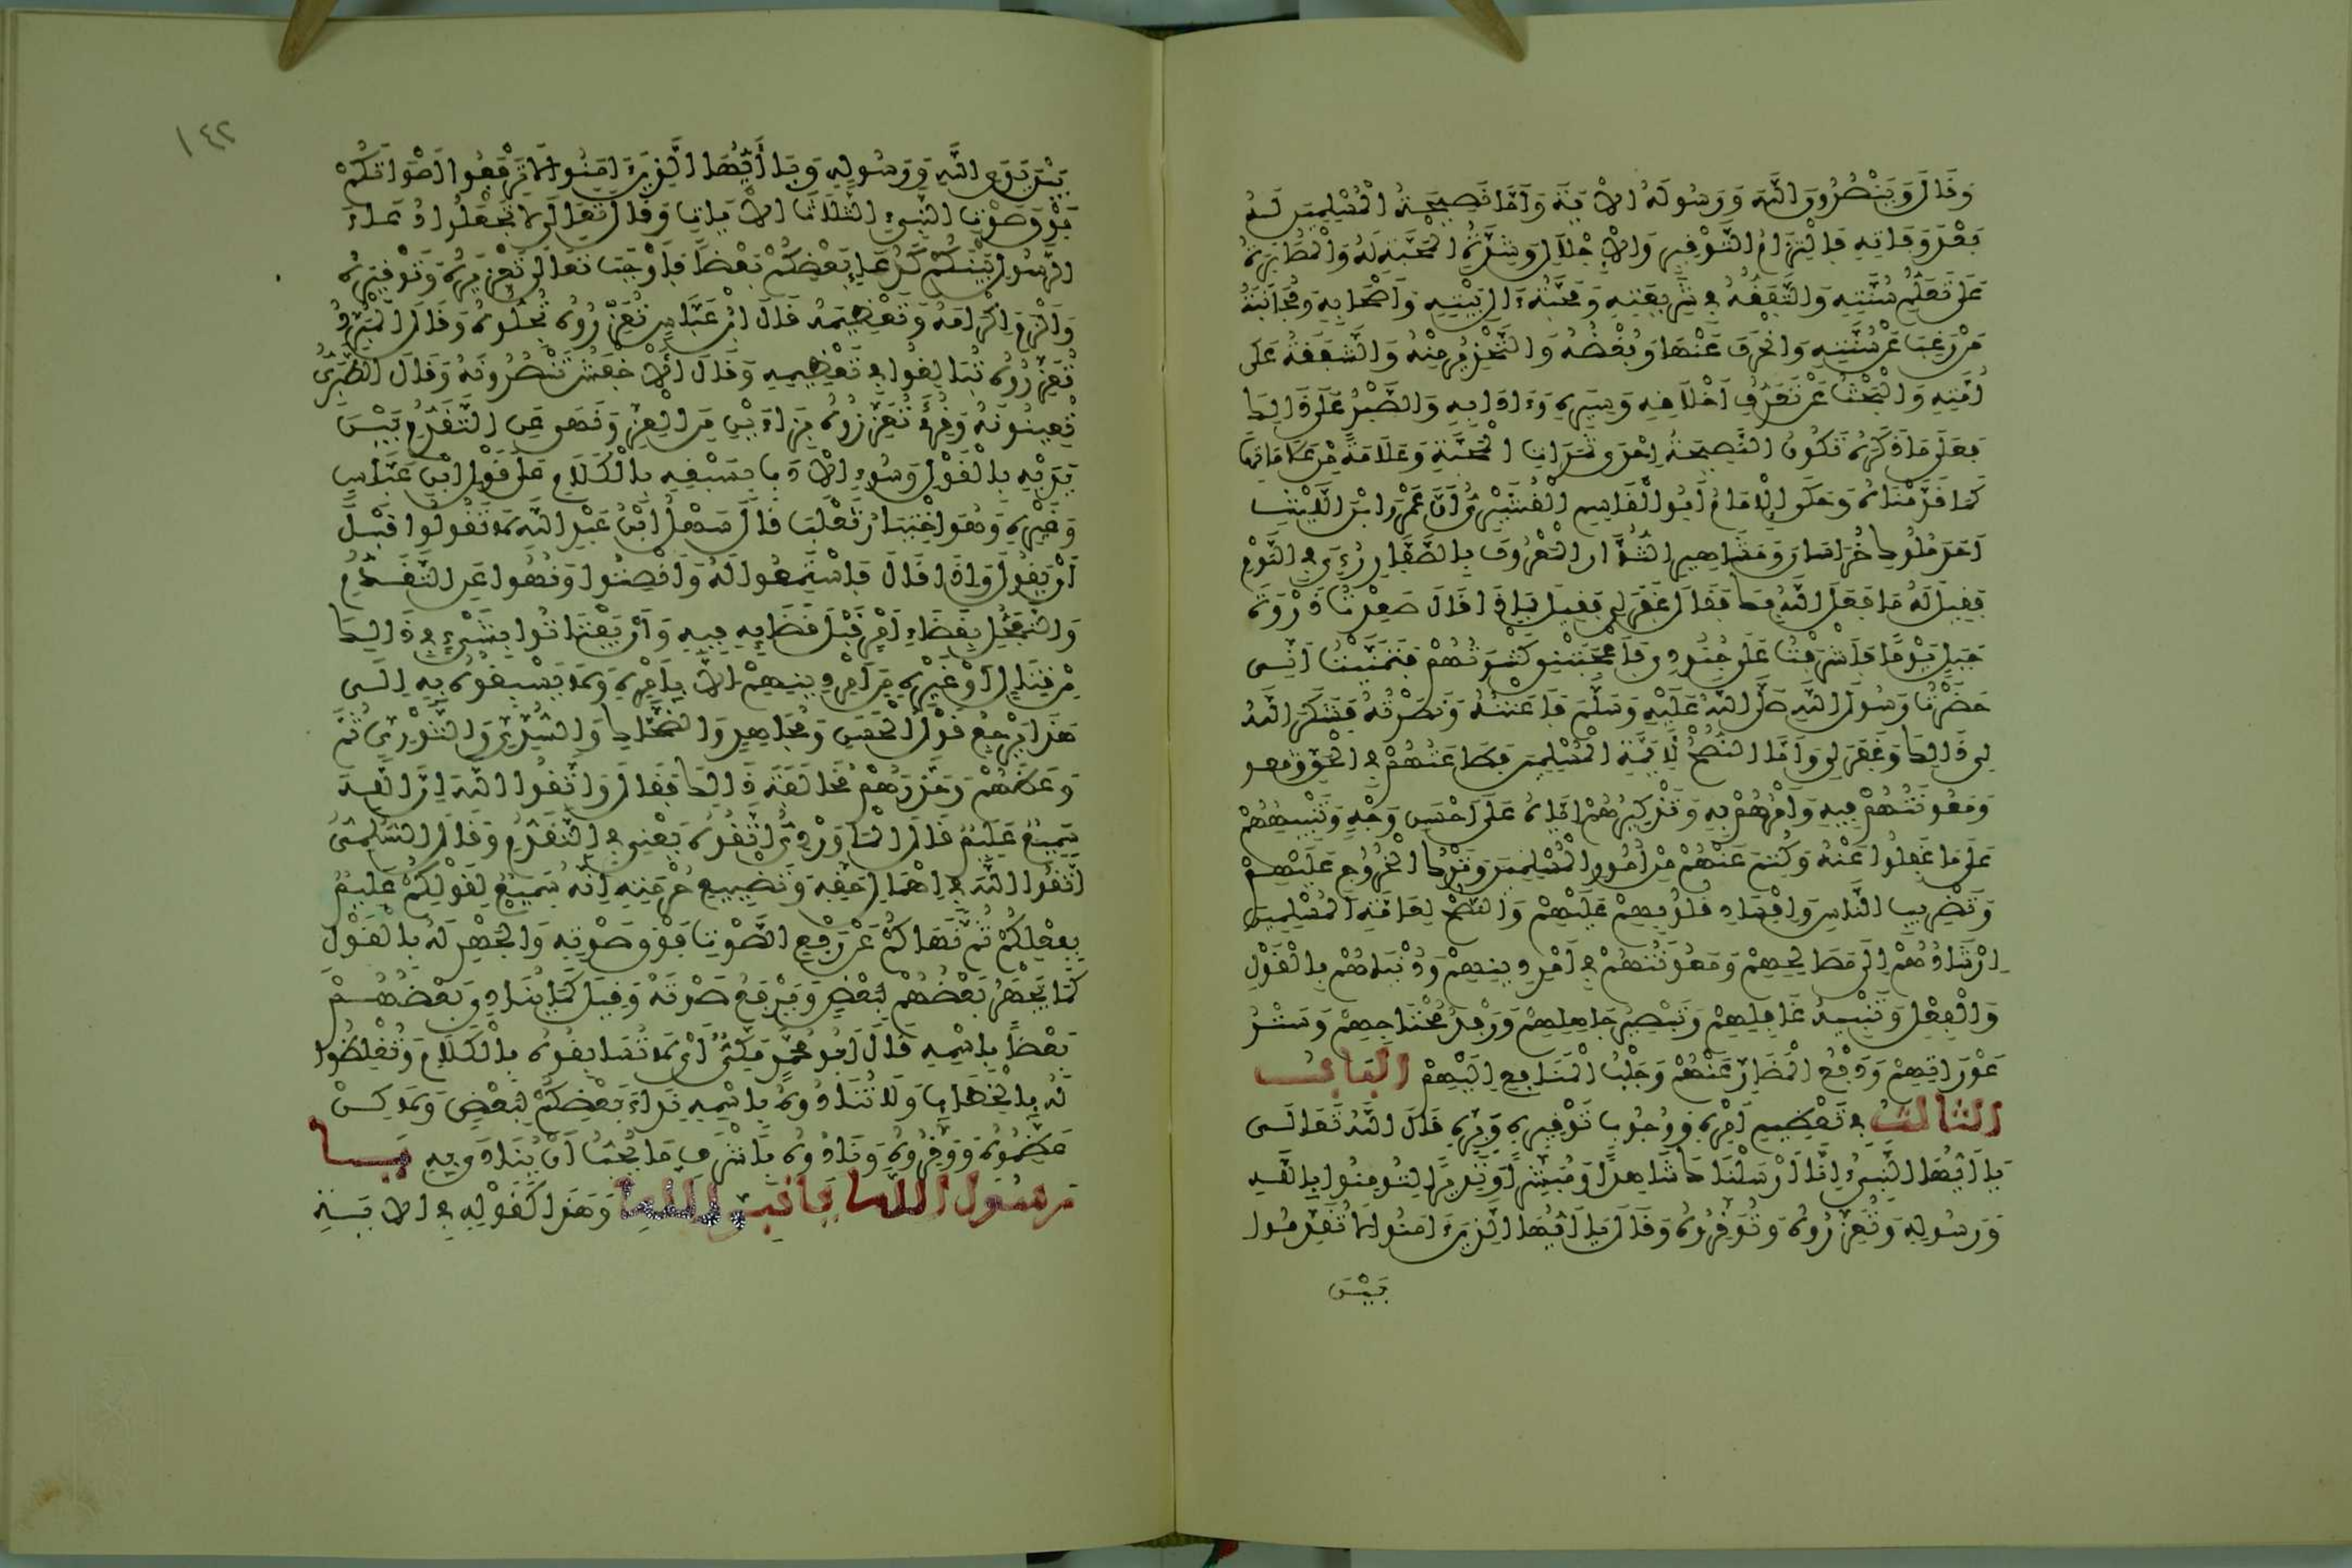 وَقَالَ وَيَنْصُرُونَ اللَّهَ وَرَسُولَهُ الْآيَةَ وَأَمَّا نَصِيحَةُ الْمُسْلِمِينَ لَهُ
بَعْدَ وَفَاتِهِ فَالْتِزَامُ التَّوْقِيرِ وَالْإِجْلَالِ وَشِدَّةُ الْمَحَبَّةِ لَهُ وَالْمُثَابَرَةُ
عَلَى تَعَلُّمِ سُنَّتِهِ وَالتَّفَقُّهُ فِي شَرِيعَتِهِ وَمَحَبَّةُ ءَالِ بَيْتِهِ وَأَصْحَابِهِ وَمُجَانَبَةُ
مَنْ رَغِبَ عَنْ سُنَّتِهِ وَانْحَرَفَ عَنْهَا وَبُغْضُهُ وَالتَّحْذِيرُ مِنْهُ وَالشَّفَقَةُ عَلَى
أُمَّتِهِ وَالْبَحْثُ عَنْ تَعَرُّفِ أَخْلَاقِهِ وَسِيَرِهِ وَءَادَابِهِ وَالصَّبْرُ عَلَى ذَالِكَ
فَعَلَى مَا ذَكَرَهُ تَكُونُ النَّصِيحَةُ إِحْدَى ثَمَرَاتِ الْمَحَبَّةِ وَعَلَامَةً مِنْ عَلَامَاتِهَا
كَمَا قَدَّمْنَاهُ وَحَكَى الْإِمَامُ أَبُو الْقَاسِمِ الْقُشَيْرِيُّ أَنَّ عَمْرَو ابْنَ اللَّيْثِ
أَحَدَ مُلُوكِ خُرَاسَانَ وَمَشَاهِيرِ الثُّوَّارِ الْمَعْرُوفَ بِالصَّفَّارِ رُءِيَ فِي النَّوْمِ
فَقِيلَ لَهُ مَا فَعَلَ اللَّهُ بِكَ فَقَالَ غَفَرَ لِي فَقِيلَ بِمَاذَا قَالَ صَعِدْتُ ذِرْوَةَ
جَبَلٍ يَوْمًا فَأَشْرَفْتُ عَلَى جُنُودِي فَأَعْجَبَتْنِي كَثْرَتُهُمْ فَتَمَنَّيْتُ أَنِّي
حَضَرْتُ رَسُولَ اللَّهِ صَلَّى اللَّهُ عَلَيْهِ وَسَلَّمَ فَأَعَنْتُهُ وَنَصَرْتُهُ فَشَكَرَ اللَّهُ
لِي ذَالِكَ وَغَفَرَ لِي وَأَمَّا النُّصْحُ لِأَئِمَّةِ الْمُسْلِمِينَ فَطَاعَتُهُمْ فِي الْحَقِّ
وَمَعُونَتُهُمْ فِيهِ وَأَمْرُهُمْ بِهِ وَتَذْكِيرُهُمْ إِيَّاهُ عَلَى أَحْسَنِ وَجْهٍ وَتَنْبِيهُهُمْ
عَلَى مَا غَفَلُوا عَنْهُ وَكُتِمَ عَنْهُمْ مِنْ أُمُورِ الْمُسْلِمِينَ وَتَرْكُ الْخُرُوجِ عَلَيْهِمْ
وَتَضْرِيبِ النَّاسِ وَإِفْسَادِ قُلُوبِهِمْ عَلَيْهِمْ وَالنُّصْحُ لِعَامَّةِ الْمُسْلِمِينَ
إِرْشَادُهُمْ إِلَى مَصَالِحِهِمْ وَمَعُونَتُهُمْ فِي أَمْرِ دِينِهِمْ وَدُنْيَاهُمْ بِالْقَوْلِ
وَالْفِعْلِ وَتَنْبِيهُ غَافِلِهِمْ وَتَبْصِيرُ جَاهِلِهِمْ وَرِفْدُ مُحْتَاجِهِمْ وَسَتْرُ
عَوْرَاتِهِمْ وَدَفْعُ الْمَضَارِّ عَنْهُمْ وَجَلْبُ الْمَنَافِعِ إِلَيْهِمْ الْبَابُ
الثَّالِثُ فِي تَعْظِيمِ أَمْرِهِ وَوُجُوبِ تَوْقِيرِهِ وَبِرِّهِ قَالَ اللَّهُ تَعَالَى
يَا أَيُّهَا النَّبِيُّ إِنَّا أَرْسَلْنَاكَ شَاهِدًا وَمُبَشِّرًا وَنَذِيرًا لِتُومِنُوا بِاللَّهِ
وَرَسُولِهِ وَتُعَزِّرُوهُ وَتُوَقِّرُوهُ وَقَالَ يَا أَيُّهَا الَّذِينَ ءَامَنُوا لَا تُقَدِّمُوا
بَيْنَ
١٤٢
بَيْنَ يَدَيِ اللَّهِ وَرَسُولِهِ وَيَا أَيُّهَا الَّذِينَ ءَامَنُوا لَا تَرْفَعُوا أَصْوَاتَكُمْ
فَوْقَ صَوْتِ النَّبِيءِ الثَّلَاثَ الْآيَاتِ وَقَالَ تَعَالَى لَا تَجْعَلُوا دُعَاءَ
الرَّسُولِ بَيْنَكُمْ كَدُعَاءِ بَعْضِكُمْ بَعْضًا فَأَوْجَبَ تَعَالَى تَعْزِيرَهُ وَتَوْقِيرَهُ
وَأَلْزَمَ إِكْرَامَهُ وَتَعْظِيمَهُ قَالَ ابْنُ عَبَّاسٍ تُعَزِّرُوهُ تُجِلُّوهُ وَقَالَ الْمُبَرِّدُ
تُعَزِّرُوهُ تُبَالِغُوا فِي تَعْظِيمِهِ وَقَالَ الْأَخْفَشُ تَنْصُرُونَهُ وَقَالَ الطَّبَرِيُّ
تُعِينُونَهُ وَقُرِئَ تُعَزِّزُوهُ بِزَاءَيْنِ مِنَ الْعِزِّ وَنَهَى عَنِ التَّقَدُّمِ بَيْنَ
يَدَيْهِ بِالْقَوْلِ وَسُوءِ الْأَدَبِ بِسَبْقِهِ بِالْكَلَامِ عَلَى قَوْلِ ابْنِ عَبَّاسٍ
وَغَيْرِهِ وَهُوَ اخْتِيَارُ ثَعْلَبَ قَالَ سَهْلُ ابْنُ عَبْدِ اللَّهِ لَا تَقُولُوا قَبْلَ
أَنْ يَقُولَ وَإِذَا قَالَ فَاسْتَمِعُوا لَهُ وَأَنْصِتُوا وَنُهُوا عَنِ التَّقَدُّمِ
وَالتَّعَجُّلِ بِقَضَاءِ أَمْرٍ قَبْلَ قَضَائِهِ فِيهِ وَأَنْ يَفْتَاتُوا بِشَيْءٍ فِي ذَالِكَ
مِنْ قِتَالٍ أَوْ غَيْرِهِ مِنْ أَمْرِ دِينِهِمْ إِلَّا بِأَمْرِهِ وَلَا يَسْبِقُوهُ بِهِ إِلَى
هَذَا يَرْجِعُ قَوْلُ الْحَسَنِ وَمُجَاهِدٍ وَالضَّحَّاكِ وَالسُّدِّيِّ وَالثَّوْرِيِّ ثُمَّ
وَعَظَهُمْ وَحَذَّرَهُمْ مُخَالَفَةَ ذَالِكَ فَقَالَ وَاتَّقُوا اللَّهَ إِنَّ اللَّهَ
سَمِيعٌ عَلِيمٌ قَالَ الْمَاوَرْدِيُّ اتَّقُوهُ يَعْنِي فِي التَّقَدُّمِ وَقَالَ السُّلَمِيُّ
اتَّقُوا اللَّهَ فِي إِهْمَالِ حَقِّهِ وَتَضْيِيعِ حُرْمَتِهِ إِنَّهُ سَمِيعٌ لِقَوْلِكُمْ عَلِيمٌ
بِفِعْلِكُمْ ثُمَّ نَهَاهُمْ عَنْ رَفْعِ الصَّوْتِ فَوْقَ صَوْتِهِ وَالْجَهْرِ لَهُ بِالْقَوْلِ
كَمَا يَجْهَرُ بَعْضُهُمْ لِبَعْضٍ وَيَرْفَعُ صَوْتَهُ وَقِيلَ كَمَا يُنَادِي بَعْضُهُمْ
بَعْضًا بِاسْمِهِ قَالَ أَبُو مُحَمَّدٍ مَكِّيٌّ أَيْ لَا تُسَابِقُوهُ بِالْكَلَامِ وَتُغْلِظُوا
لَهُ بِالْخِطَابِ وَلَا تُنَادُوهُ بِاسْمِهِ نِدَاءَ بَعْضِكُمْ لِبَعْضٍ وَلَاكِنْ
عَظِّمُوهُ وَوَقِّرُوهُ وَنَادُوهُ بِأَشْرَفِ مَا يُحِبُّ أَنْ يُنَادَى بِهِ يَا
رَسُولَ اللَّهِ يَا نَبِيَّ اللَّهِ وَهَذَا كَقَوْلِهِ فِي الْآيَةِ